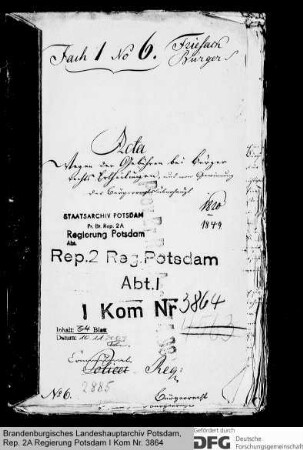 Fach 1 No 6.
Friesack
Bürger
Acta
Wegen der Gebühren bei Bürger
rechts Ertheilungen, und von Gewinnung
des Bürgerrechts überhaupt
pro
1849
STAATSARCHIV POTSDAM
Pr. Br. Rep. 2A
Regierung Potsdam
Abt.
Rep.2 Reg.Potsdam
Abt.I
I Kom Nr 3864
Inhalt: 64 Blatt
Datum:
Communal
Polizei Reg:
No 6.
2885
Bürgerrecht
Brandenburgisches Landeshauptarchiv Potsdam,
Rep. 2A Regierung Potsdam I Kom Nr. 3864
Gefördert durch
DFG Deutsche
Forschungsgemeinschaft